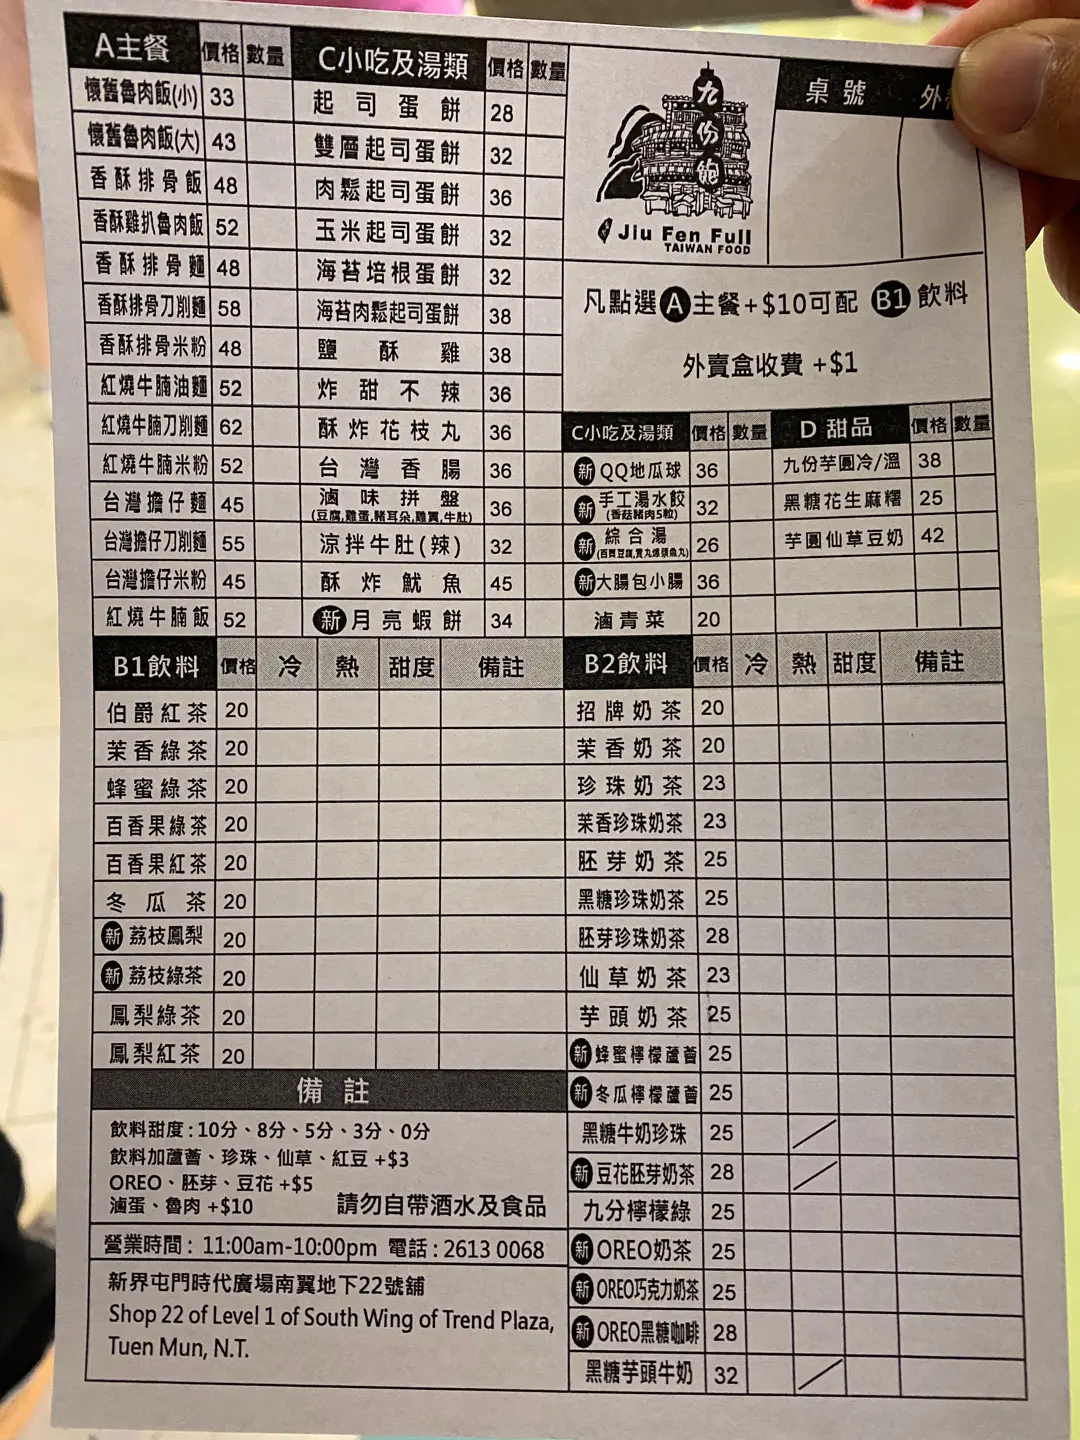 A主餐 價格 數量
懷舊魯肉飯(小) 33
懷舊魯肉飯(大) 43
香酥排骨飯 48
香酥雞扒魯肉飯 52
香酥排骨麵 48
香酥排骨刀削麵 58
香酥排骨米粉 48
紅燒牛腩油麵 52
紅燒牛腩刀削麵 62
紅燒牛腩米粉 52
台灣擔仔麵 45
台灣擔仔刀削麵 55
台灣擔仔米粉 45
紅燒牛腩飯 52
C小吃及湯類 價格 數量
起司蛋餅 28
雙層起司蛋餅 32
肉鬆起司蛋餅 36
玉米起司蛋餅 32
海苔培根蛋餅 32
海苔肉鬆起司蛋餅 38
鹽酥雞 38
炸甜不辣 36
酥炸花枝丸 36
台灣香腸 36
滷味拼盤 36
(豆腐,雞蛋,豬耳朵,雞翼,牛肚)
涼拌牛肚(辣) 32
酥炸魷魚 45
新 月亮蝦餅 34
九份飽
Jiu Fen Full
TAIWAN FOOD
桌號 外
凡點選A主餐+$10可配 B1飲料
外賣盒收費 +$1
C小吃及湯類 價格 數量
新 QQ地瓜球 36
新 手工湯水餃 32
(香菇豬肉5粒)
新 綜合湯 26
新 大腸包小腸 36
滷青菜 20
D 甜品 價格 數量
九份芋圓冷/溫 38
黑糖花生麻糬 25
芋圓仙草豆奶 42
B1飲料 價格 冷 熱 甜度 備註
伯爵紅茶 20
茉香綠茶 20
蜂蜜綠茶 20
百香果綠茶 20
百香果紅茶 20
冬瓜茶 20
新 荔枝鳳梨 20
新 荔枝綠茶 20
鳳梨綠茶 20
鳳梨紅茶 20
B2飲料 價格 冷 熱 甜度 備註
招牌奶茶 20
茉香奶茶 20
珍珠奶茶 23
茉香珍珠奶茶 23
胚芽奶茶 25
黑糖珍珠奶茶 25
胚芽珍珠奶茶 28
仙草奶茶 23
芋頭奶茶 25
新 蜂蜜檸檬蘆薈 25
新 冬瓜檸檬蘆薈 25
黑糖牛奶珍珠 25
新 豆花胚芽奶茶 28
九分檸檬綠 25
新 OREO奶茶 25
新 OREO巧克力奶茶 25
新 OREO黑糖咖啡 28
黑糖芋頭牛奶 32
備註
飲料甜度:10分、8分、5分、3分、0分
飲料加蘆薈、珍珠、仙草、紅豆 +$3
OREO、胚芽、豆花 +$5
滷蛋、魯肉 +$10 請勿自帶酒水及食品
營業時間: 11:00am-10:00pm 電話:2613 0068
新界屯門時代廣場南翼地下22號舖
Shop 22 of Level 1 of South Wing of Trend Plaza,
Tuen Mun, N.T.